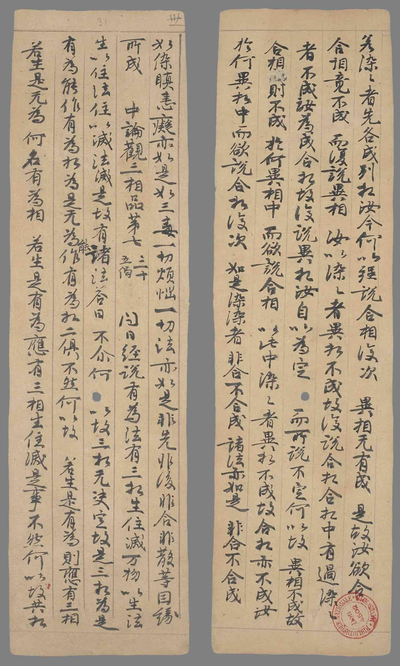 若染々者先各成別相汝今何以強說合相復次 異相无有成 是故汝欲合
合相竟不成 而復說異相 汝以染々者異相不成故復說合相合相中有過染々
者不成汝為成合相故復說異相汝自以為定 而所說不定何以故 異相不成故
合相則不成 於何異相中 而欲說合相 以此中染々者異相不成故合相亦不成汝
於何異相中而欲說合相復次 如是染染者 非合不合成 諸法亦如是 非合不合成
如染瞋恚癡亦如是如三毒一切煩惱一切法亦如是非先非後非合非散等因緣
所成 中論觀三相品第七 三十五偈 問曰經說有為法有三相生住滅万物以生法
生以住法住以滅法滅是故有諸法答曰不尒何以故三相无決定故是三相為是
有為能作有為相為是无為能作有為相二俱不然何以故 若生是有為則應有三相
若生是无為 何名有為相 若生是有為應有三相生住滅是事不然何以故共相